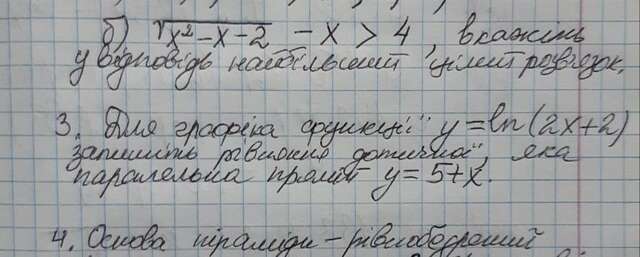 б) √x²-x-2 - x > 4, вкажіть
у відповідь найбільший цілий розв'язок.
3. Для графіка функції y=ln(2x+2)
запишіть рівняння дотичної, яка
паралельна прямій y=5+x.
4. Основа піраміди - рівнобедрений